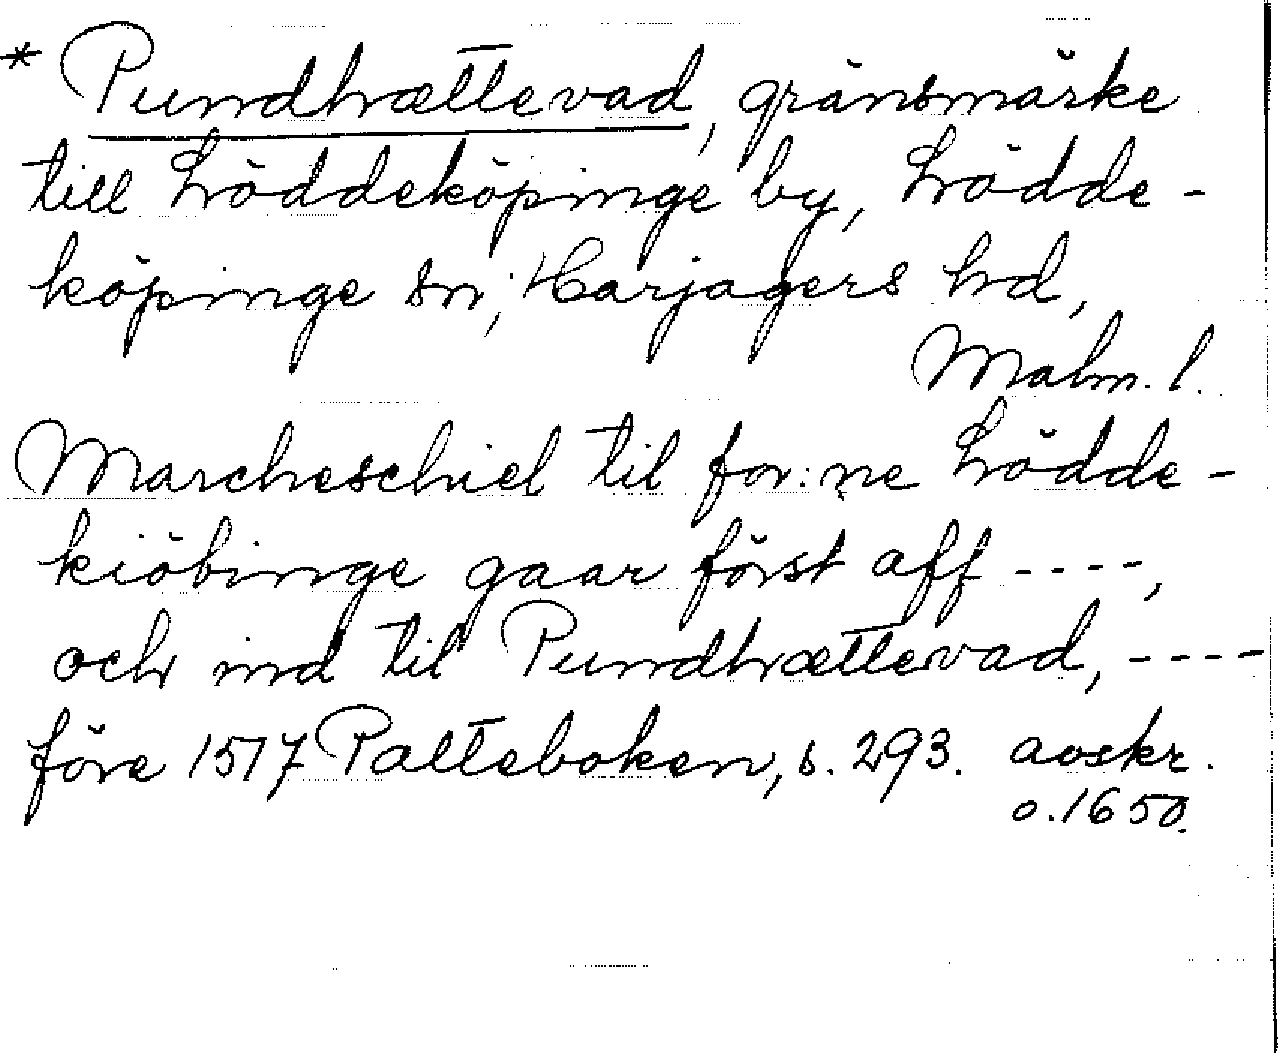 * Pundhættevad, gränsmärke
till Löddeköpinge by, Lödde-
köpinge sn, Harjagers hd,
Malm. l.
Marcheschiel til for:ne Lödde-
kiöbinge gaar först aff ----,
och ind til Pundhættevad, ----
före 1517 Palteboken, s. 293. avskr.
o. 1650.